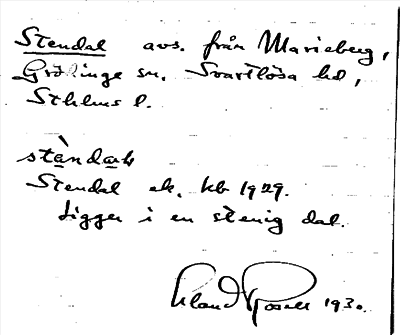 Stendal avs. från Marieberg,
Grödinge sn. Svartlösa hd,
Sthlms l.
stèndal
Stendal ek. kb 1929.
Ligger i en stenig dal.
Roselll 1930.